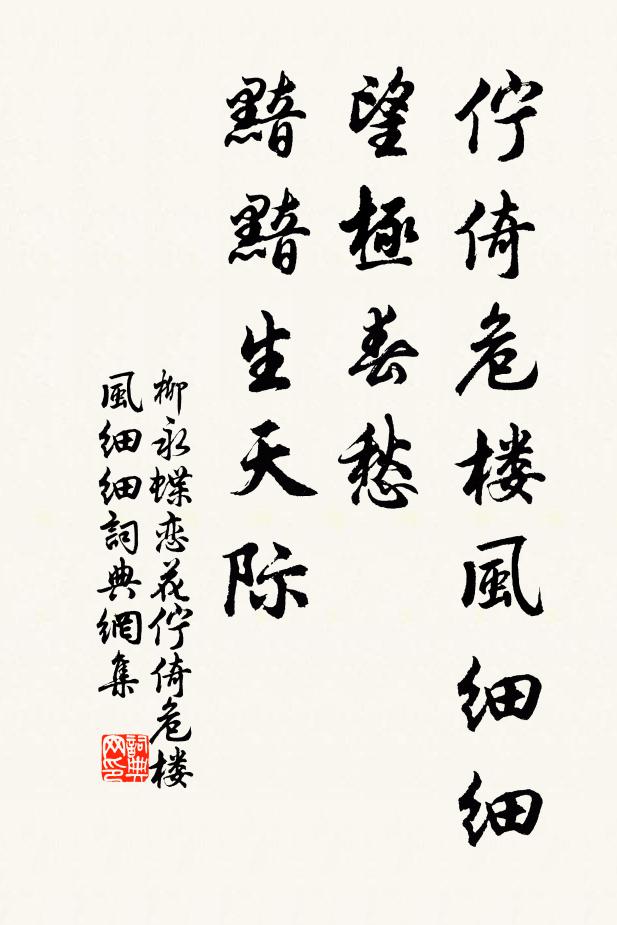 伫倚危楼風细细
望極春愁
黯黯生天际
柳永蝶恋花伫倚危楼
風细细詞典網集
詞典
网印